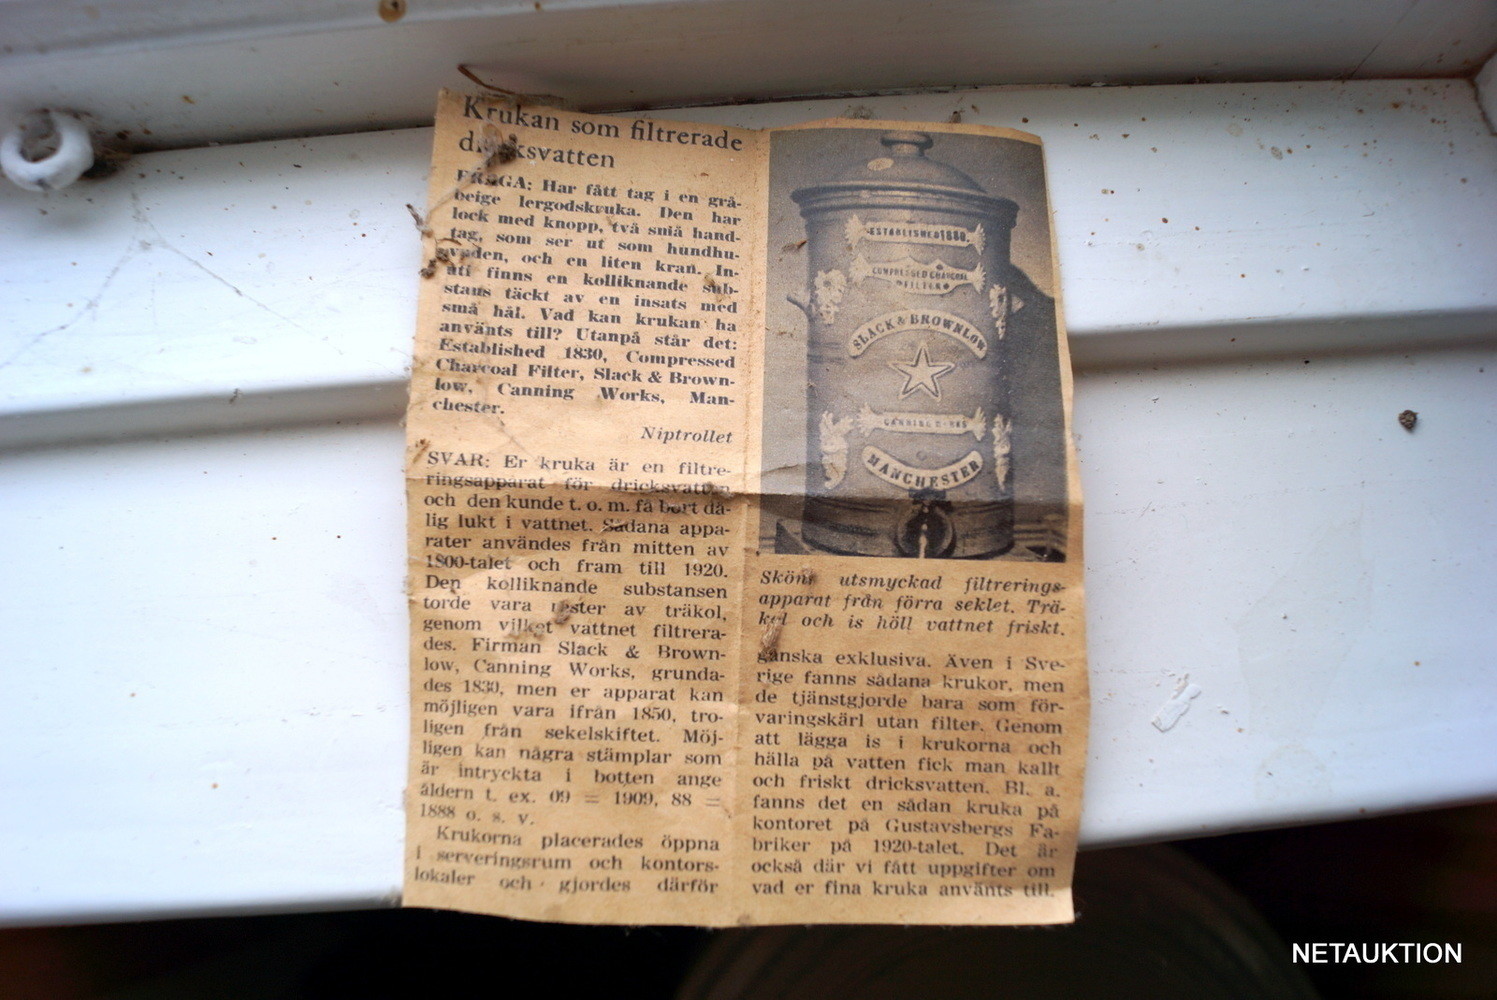 Krukan som filtrerade
dricksvatten
FRÅGA: Har fått tag i en grå-
beige lergodskruka. Den har
lock med knopp, två små hand-
tag, som ser ut som hundhu-
vuden, och en liten kran. In-
uti finns en kolliknande sub-
stans täckt av en insats med
små hål. Vad kan krukan ha
använts till? Utanpå står det:
Established 1830, Compressed
Charcoal Filter, Slack & Brown-
low, Canning Works, Man-
chester.
Niptrollet
SVAR: Er kruka är en filtre-
ringsapparat för dricksvatten
och den kunde t. o. m. få bort då-
lig lukt i vattnet. Sådana appa-
rater användes från mitten av
1800-talet och fram till 1920.
Den kolliknande substansen
torde vara rester av träkol,
genom vilket vattnet filtrera-
des. Firman Slack & Brown-
low, Canning Works, grunda-
des 1830, men er apparat kan
möjligen vara ifrån 1850, tro-
ligen från sekelskiftet. Möj-
ligen kan några stämplar som
är intryckta i botten ange
åldern t. ex. 09 = 1909, 88 =
1888 o. s. v.
Krukorna placerades öppna
i serveringsrum och kontors-
lokaler och gjordes därför
ESTABLISHED 1830.
COMPRESSED CHARCOAL
FILTER
SLACK & BROWNLOW
CANNING
MANCHESTER
Skönt utsmyckad filtrerings-
apparat från förra seklet. Trä-
kol och is höll vattnet friskt.
ganska exklusiva. Även i Sve-
rige fanns sådana krukor, men
de tjänstgjorde bara som för-
varingskärl utan filter. Genom
att lägga is i krukorna och
hälla på vatten fick man kallt
och friskt dricksvatten. Bl. a.
fanns det en sådan kruka på
kontoret på Gustavsbergs Fa-
briker på 1920-talet. Det är
också där vi fått uppgifter om
vad er fina kruka använts till.
NETAUKTION